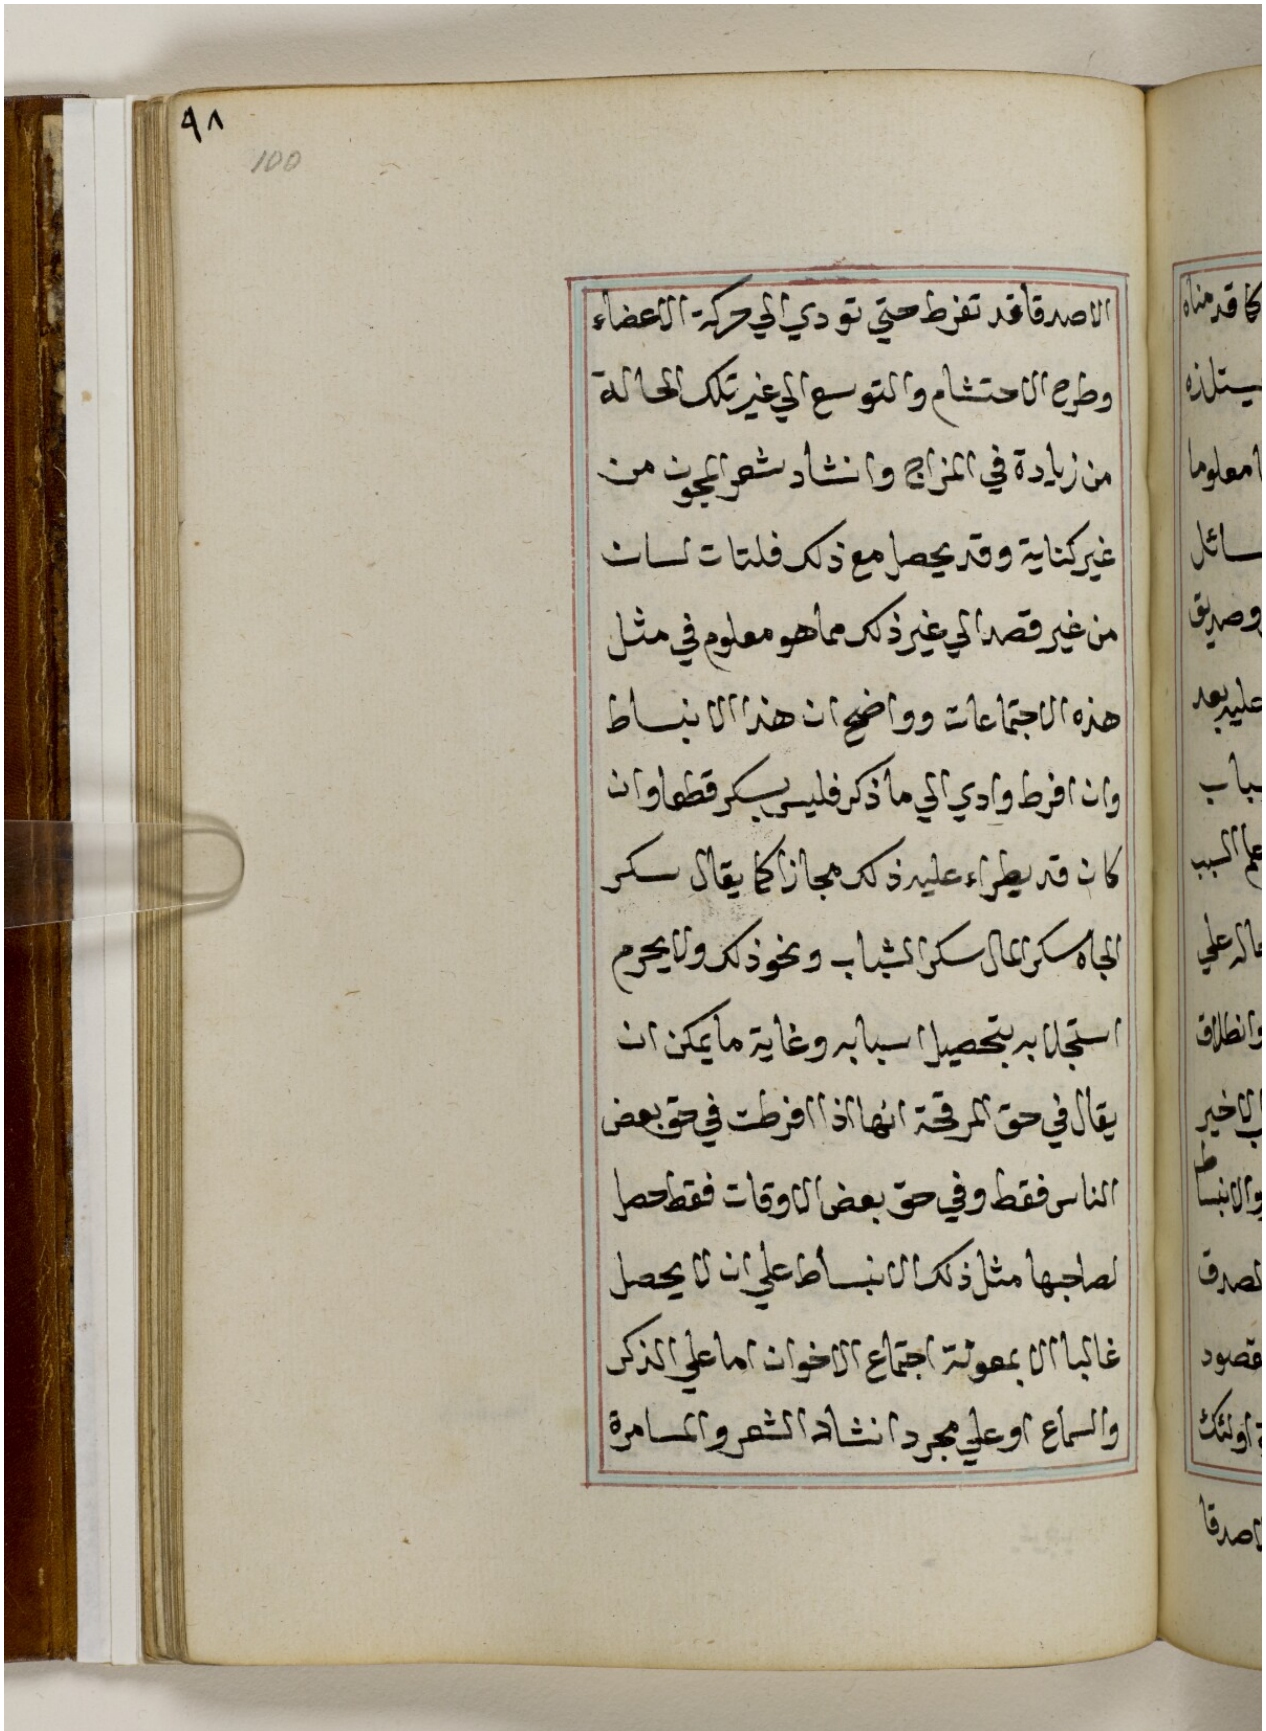 ٩٨
100
الاصدقا قد تفرط حتي تودي الي حركة الاعضاء
وطرح الاحتشام والتوسع الي غير تلك الحالة
من زيادة في المزاح وانشاد شعر المجون من
غير كناية وقد يحصل مع ذلك فلتات لسان
من غير قصد الي غير ذلك مما هو معلوم في مثل
هذه الاجتماعات وواضح ان هذا الانبساط
وان افرط وادي الي ما ذكر فليس بسكر قطعا وان
كان قد يطراء عليه ذلك مجازا كما يقال سكر
الجاه سكر المال سكر الشباب ونحو ذلك ولا يحرم
استجلابه بتحصيل اسبابه وغاية ما يمكن ان
يقال في حق المرقحة انها اذا افرطت في حق بعض
الناس فقط وفي حق بعض الاوقات فقط حصل
لصاحبها مثل ذلك الانبساط علي ان لا يحصل
غالبا الا بمعونة اجتماع الاخوان اما علي الذكر
والسماع او علي مجرد انشاد الشعر والمسامرة
كما قدمناه
يستلذه
معلوما
سائل
وصديق
عليه بعد
السبب
علي
وانطلاق
الاخير
والانبساط
اولئك